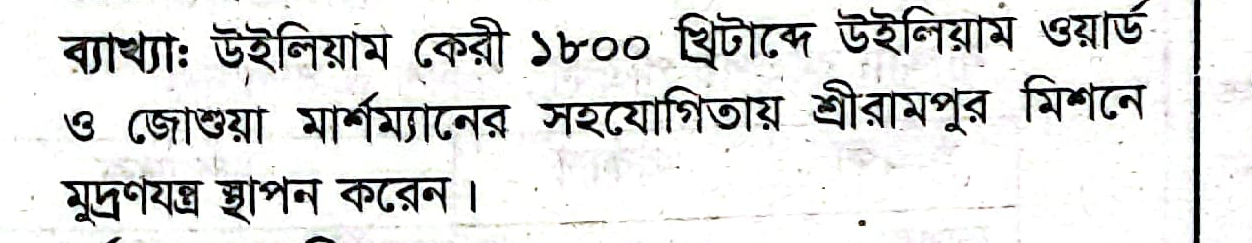 ব্যাখ্যাঃ উইলিয়াম কেরী ১৮০০ খ্রিটাব্দে উইলিয়াম ওয়ার্ড
ও জোশুয়া মার্শম্যানের সহযোগিতায় শ্রীরামপুর মিশনে
মুদ্রণযন্ত্র স্থাপন করেন।